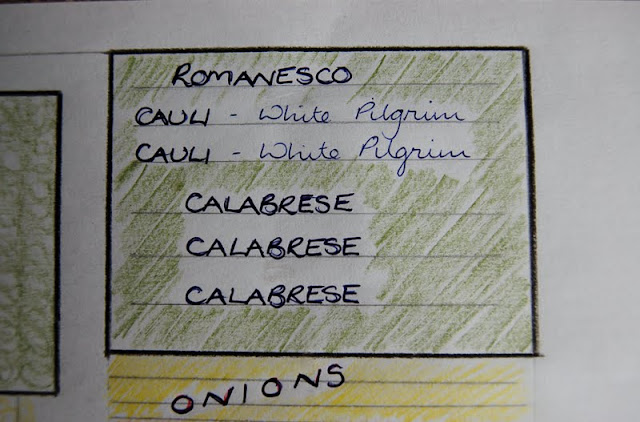 ROMANESCO
CAULI - White Pilgrim
CAULI - White Pilgrim
CALABRESE
CALABRESE
CALABRESE
ONIONS